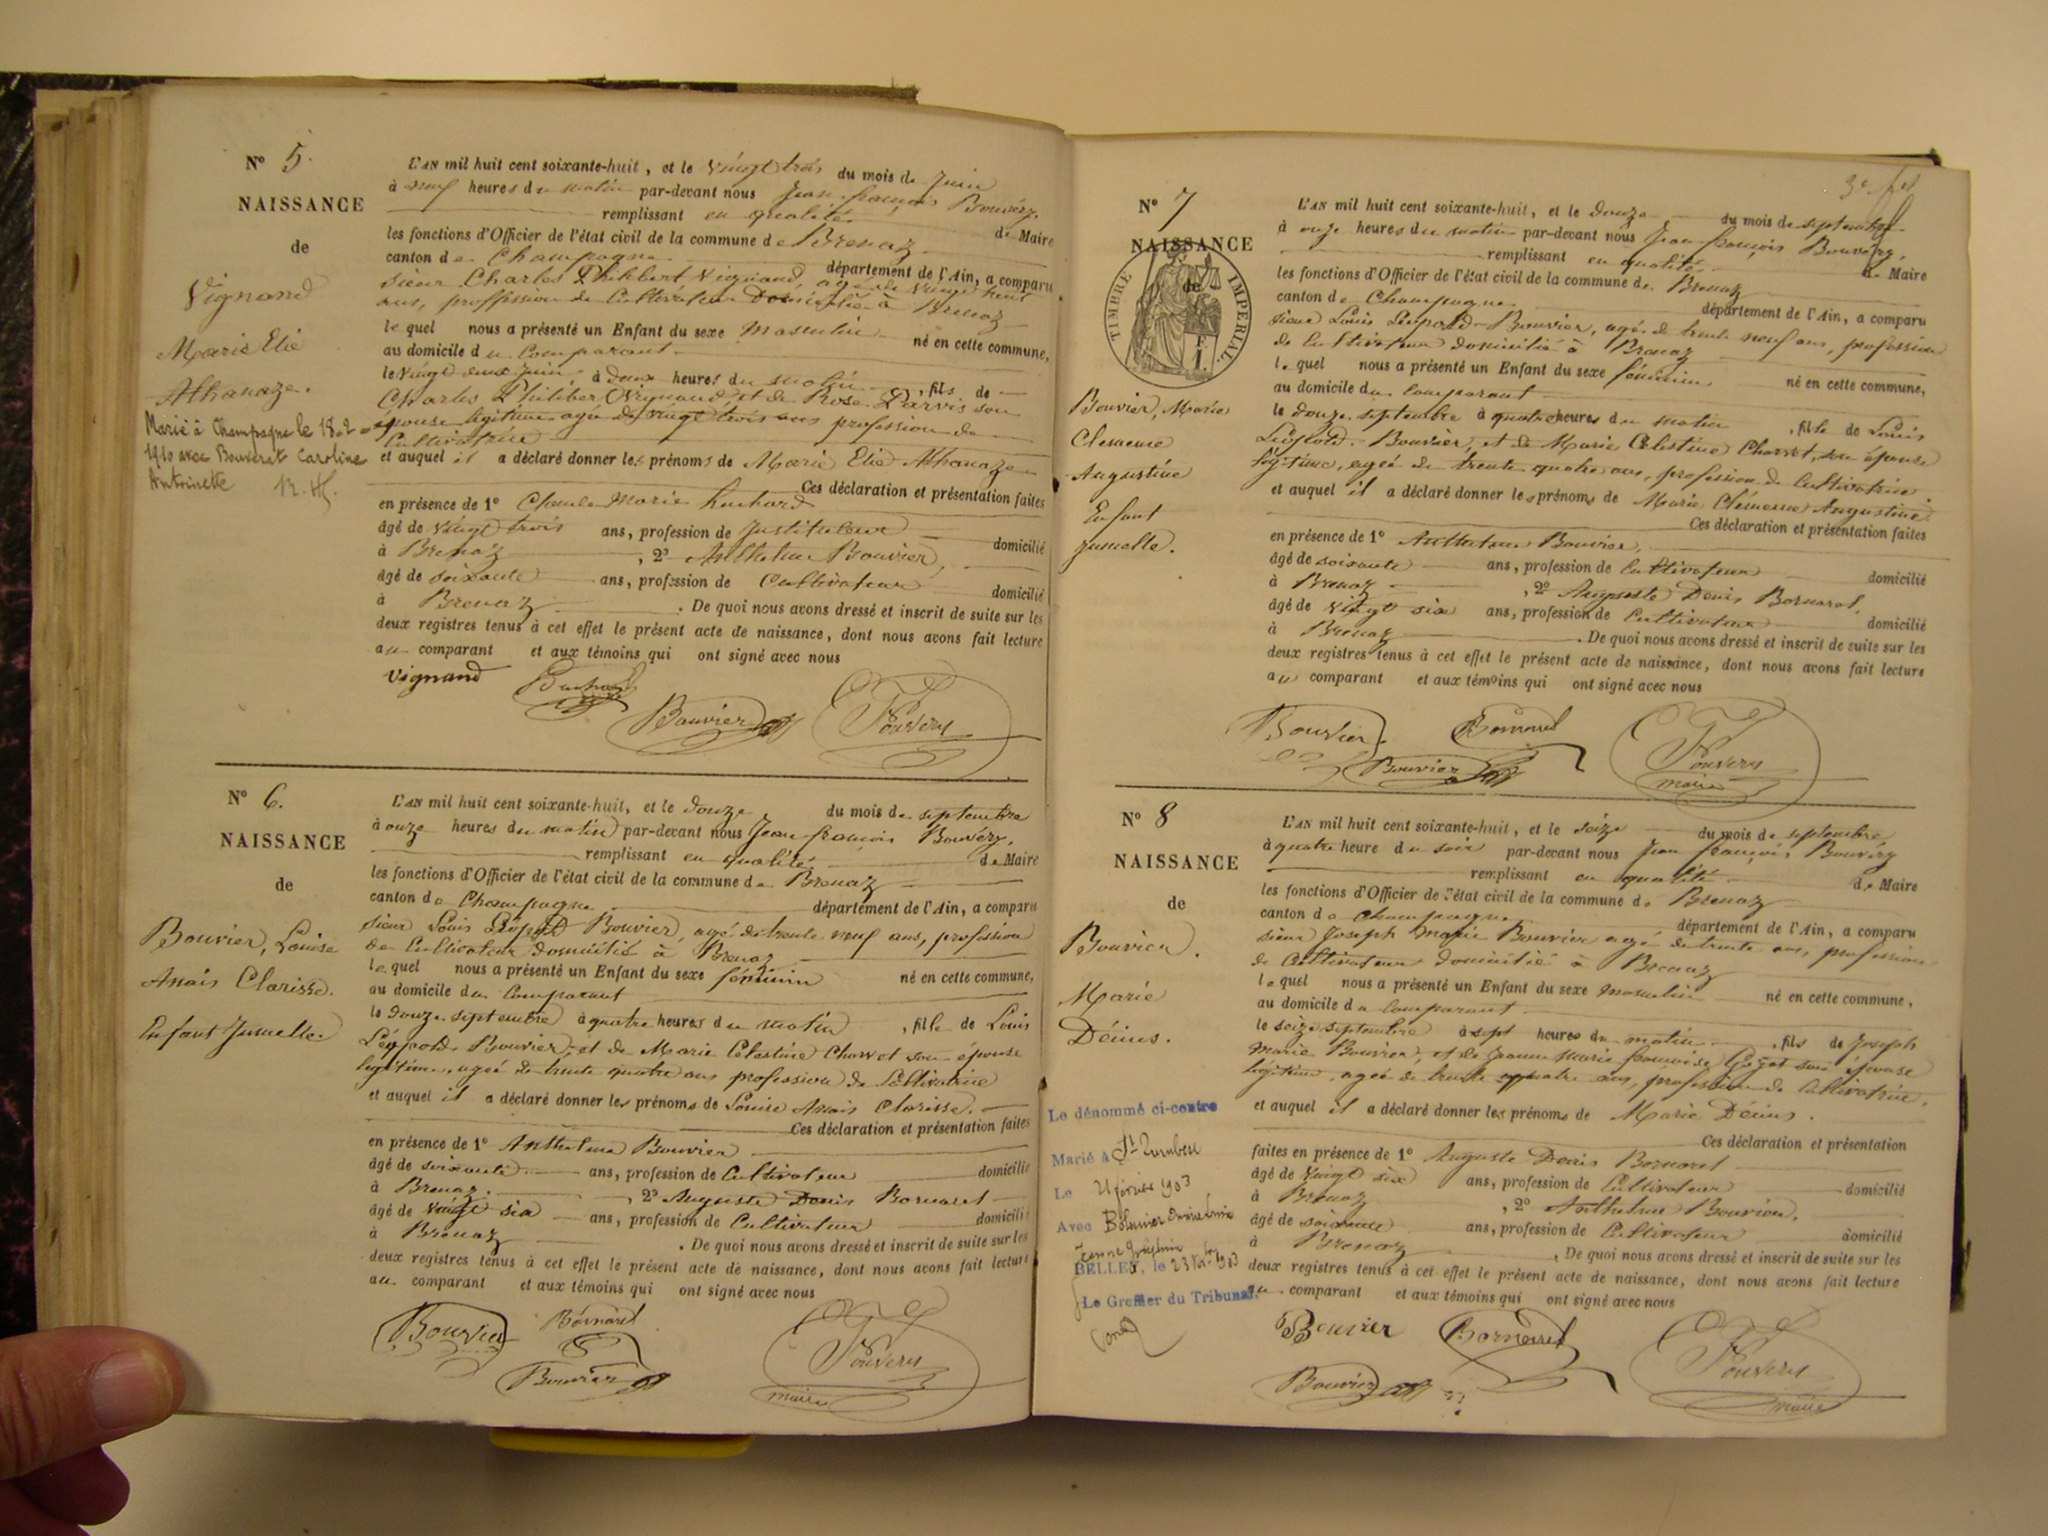 N° 5.
NAISSANCE
de
Vignand
Marie Elie
Athanaze.
Marié à Champagne le 18.2
1910 avec Bouverat Caroline
Antoinette
L'AN mil huit cent soixante-huit, et le vingt trois du mois de Juin
à neuf heures du matin par-devant nous Jean françois Bouvéry.
remplissant en qualité de Maire
les fonctions d'Officier de l'état civil de la commune de Brenaz
canton de Champagne département de l'Ain, a comparu
sieur Charles Philibert Vignand, agé de vingt neuf
ans, proffession de Cultivateur Domicilié à Brenaz
lequel nous a présenté un Enfant du sexe masculin né en cette commune,
au domicile du Comparant
le vingt deux Juin à deux heures du matin, fils de
Charles Philiber Vignand, et de Rose Parvis son
épouse légitime agée de vingt trois ans profession de
Cultivatrice
et auquel il a déclaré donner les prénoms de Marie Elie Athanaze
Ces déclaration et présentation faites
en présence de 1° Charle Marie
âgé de vingt trois ans, profession de Instituteur domicilié
à Brenaz, 2° Anthelme Bouvier,
âgé de soixante ans, profession de Cultivateur domicilié
à Brenaz. De quoi nous avons dressé et inscrit de suite sur les
deux registres tenus à cet effet le présent acte de naissance, dont nous avons fait lecture
au comparant et aux témoins qui ont signé avec nous
Vignand
Bouvier
Bouvery
N° 6.
NAISSANCE
de
Bouvier, Louise
Anaïs Clarisse.
Enfant Jumelle.
L'AN mil huit cent soixante-huit, et le douze du mois de septembre
à onze heures du matin par-devant nous Jean françois Bouvéry,
remplissant en qualité de Maire
les fonctions d'Officier de l'état civil de la commune de Brenaz
canton de Champagne département de l'Ain, a comparu
sieur Louis Léopold Bouvier, agé de trente neuf ans, profession
de Cultivateur domicilié à Brenaz
lequel nous a présenté un Enfant du sexe féminin né en cette commune,
au domicile du Comparant
le douze septembre à quatre heures du matin, fille de Louis
Léopold Bouvier, et de Marie Célestine Charvet son épouse
légitime, agée de trente quatre ans profession de Cultivatrice
et auquel il a déclaré donner les prénoms de Louise Anaïs Clarisse.
Ces déclaration et présentation faites
en présence de 1° Anthelme Bouvier
âgé de soixante ans, profession de Cultivateur domicilié
à Brenaz, 2° Auguste Denis Bornarel
âgé de vingt six ans, profession de Cultivateur domicilié
à Brenaz. De quoi nous avons dressé et inscrit de suite sur les
deux registres tenus à cet effet le présent acte de naissance, dont nous avons fait lecture
au comparant et aux témoins qui ont signé avec nous
Bouvier Bornarel
Bouvier Bouvery
maire
N° 7
NAISSANCE
de
TIMBRE IMPERIAL
Bouvier, Marie
Clémence
Augustine
Enfant
Jumelle.
L'AN mil huit cent soixante-huit, et le douze du mois de septembre
à onze heures du matin par-devant nous Jean françois Bouvéry,
remplissant en qualité de Maire
les fonctions d'Officier de l'état civil de la commune de Brenaz
canton de Champagne département de l'Ain, a comparu
sieur Louis Léopold Bouvier, agé de trente neuf ans, profession
de Cultivateur domicilié à Brenaz
lequel nous a présenté un Enfant du sexe féminin né en cette commune,
au domicile du Comparant
le douze septembre à quatre heures du matin, fille de Louis
Léopold Bouvier, et de Marie Célestine Charvet, son épouse
légitime, agée de trente quatre ans, profession de Cultivatrice
et auquel il a déclaré donner les prénoms de Marie Clémence Augustine.
Ces déclaration et présentation faites
en présence de 1° Anthelme Bouvier,
âgé de soixante ans, profession de Cultivateur domicilié
à Brenaz, 2° Auguste Denis Bornarel,
âgé de vingt six ans, profession de Cultivateur domicilié
à Brenaz. De quoi nous avons dressé et inscrit de suite sur les
deux registres tenus à cet effet le présent acte de naissance, dont nous avons fait lecture
au comparant et aux témoins qui ont signé avec nous
Bouvier Bornarel
Bouvier Bouvery
maire
N° 8
NAISSANCE
de
Bouvier.
Marie
Dénius.
Le dénommé ci-contre
Marié à
Le 21 février 1903
Avec
BELLEY, le 23 1903
Le Greffier du Tribunal
L'AN mil huit cent soixante-huit, et le seize du mois de septembre
à quatre heure du soir par-devant nous Jean françois Bouvéry
remplissant en qualité de Maire
les fonctions d'Officier de l'état civil de la commune de Brenaz
canton de Champagne département de l'Ain, a comparu
sieur Joseph Marie Bouvier agé de trente ans, profession
de Cultivateur domicilié à Brenaz
lequel nous a présenté un Enfant du sexe masculin né en cette commune,
au domicile du Comparant
le seize septembre à sept heures du matin, fils de Joseph
Marie Bouvier, et de Jeanne Marie françoise son épouse
légitime, agée de trente quatre ans, profession de Cultivatrice.
et auquel il a déclaré donner les prénoms de Marie Dénius.
Ces déclaration et présentation
faites en présence de 1° Auguste Denis Bornarel
âgé de vingt six ans, profession de Cultivateur domicilié
à Brenaz, 2° Anthelme Bouvier,
âgé de soixante ans, profession de Cultivateur domicilié
à Brenaz. De quoi nous avons dressé et inscrit de suite sur les
deux registres tenus à cet effet le présent acte de naissance, dont nous avons fait lecture
au comparant et aux témoins qui ont signé avec nous
Bouvier Bornarel
Bouvier Bouvery
maire